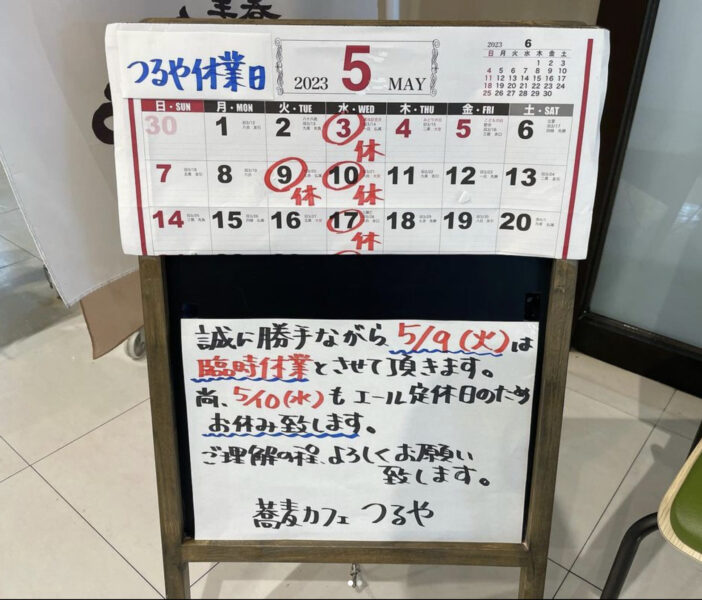 つるや休業日
2023 5 MAY
2023 6
日 月 火 水 木 金 土
1 2 3
4 5 6 7 8 9 10
11 12 13 14 15 16 17
18 19 20 21 22 23 24
25 26 27 28 29 30
日・SUN 月・MON 火・TUE 水・WED 木・THU 金・FRI 土・SAT
30 1 2 3 4 5 6
休
7 8 9 10 11 12 13
休 休
14 15 16 17 18 19 20
休
誠に勝手ながら、5/9(火)は
臨時休業とさせて頂きます。
尚、5/10(水)もエール定休日のため
お休み致します。
ご理解の程、よろしくお願い
致します。
蕎麦カフェ つるや